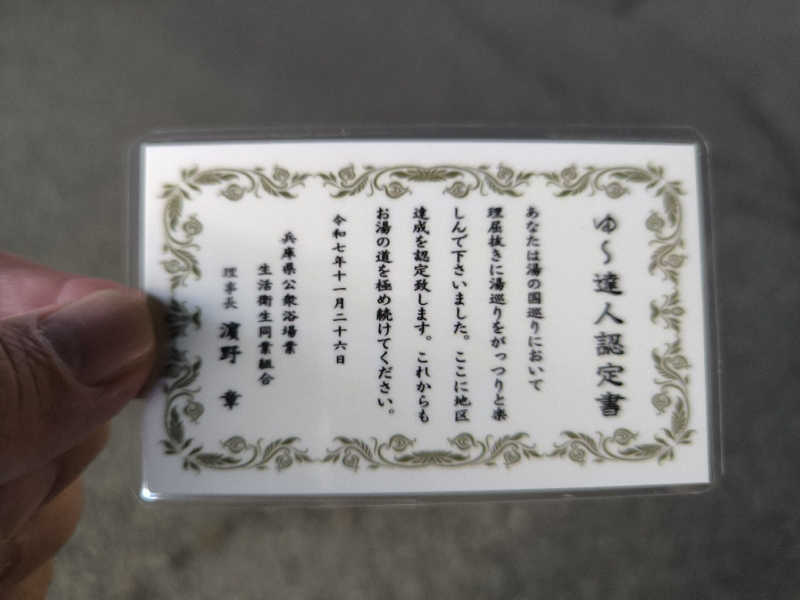 ゆ～達人認定書
あなたは湯の国巡りにおいて
理屈抜きに湯巡りをがっつりと楽
しんで下さいました。ここに地区
達成を認定致します。これからも
お湯の道を極め続けてください。
令和七年十一月二十六日
兵庫県公衆浴場業
生活衛生同業組合
理事長 濵野 章